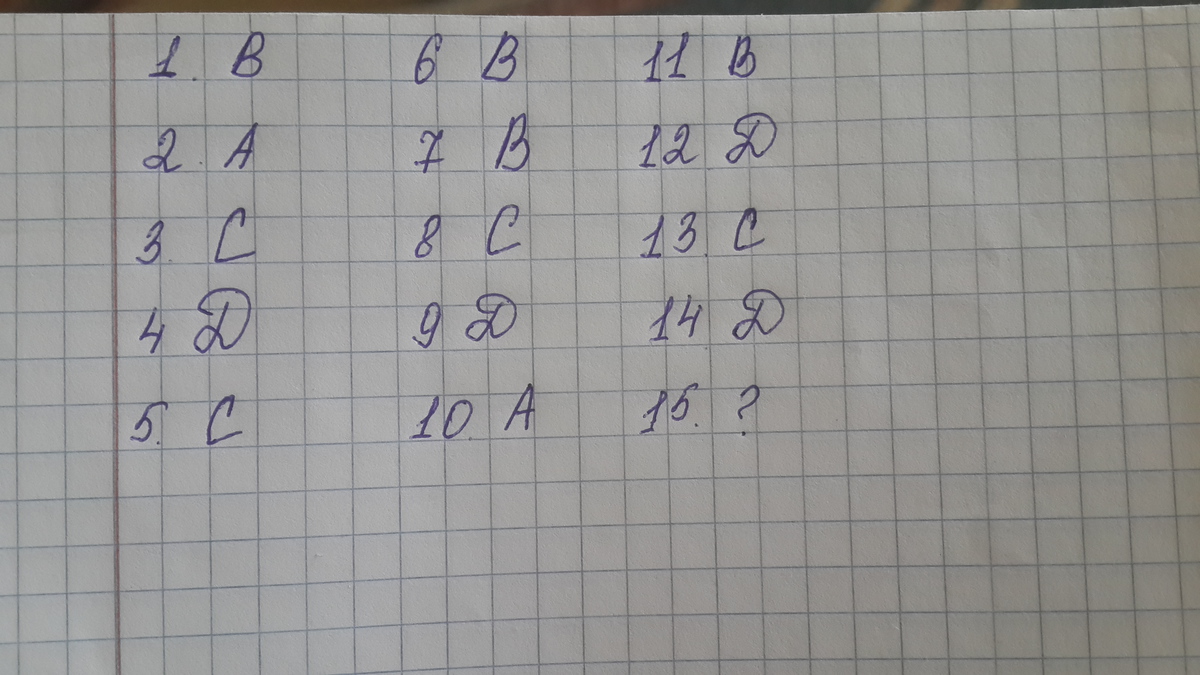 1. B
2. A
3. C
4 D
5. C
6 B
7 B
8 C
9 D
10. A
11 B
12 D
13. C
14 D
15. ?